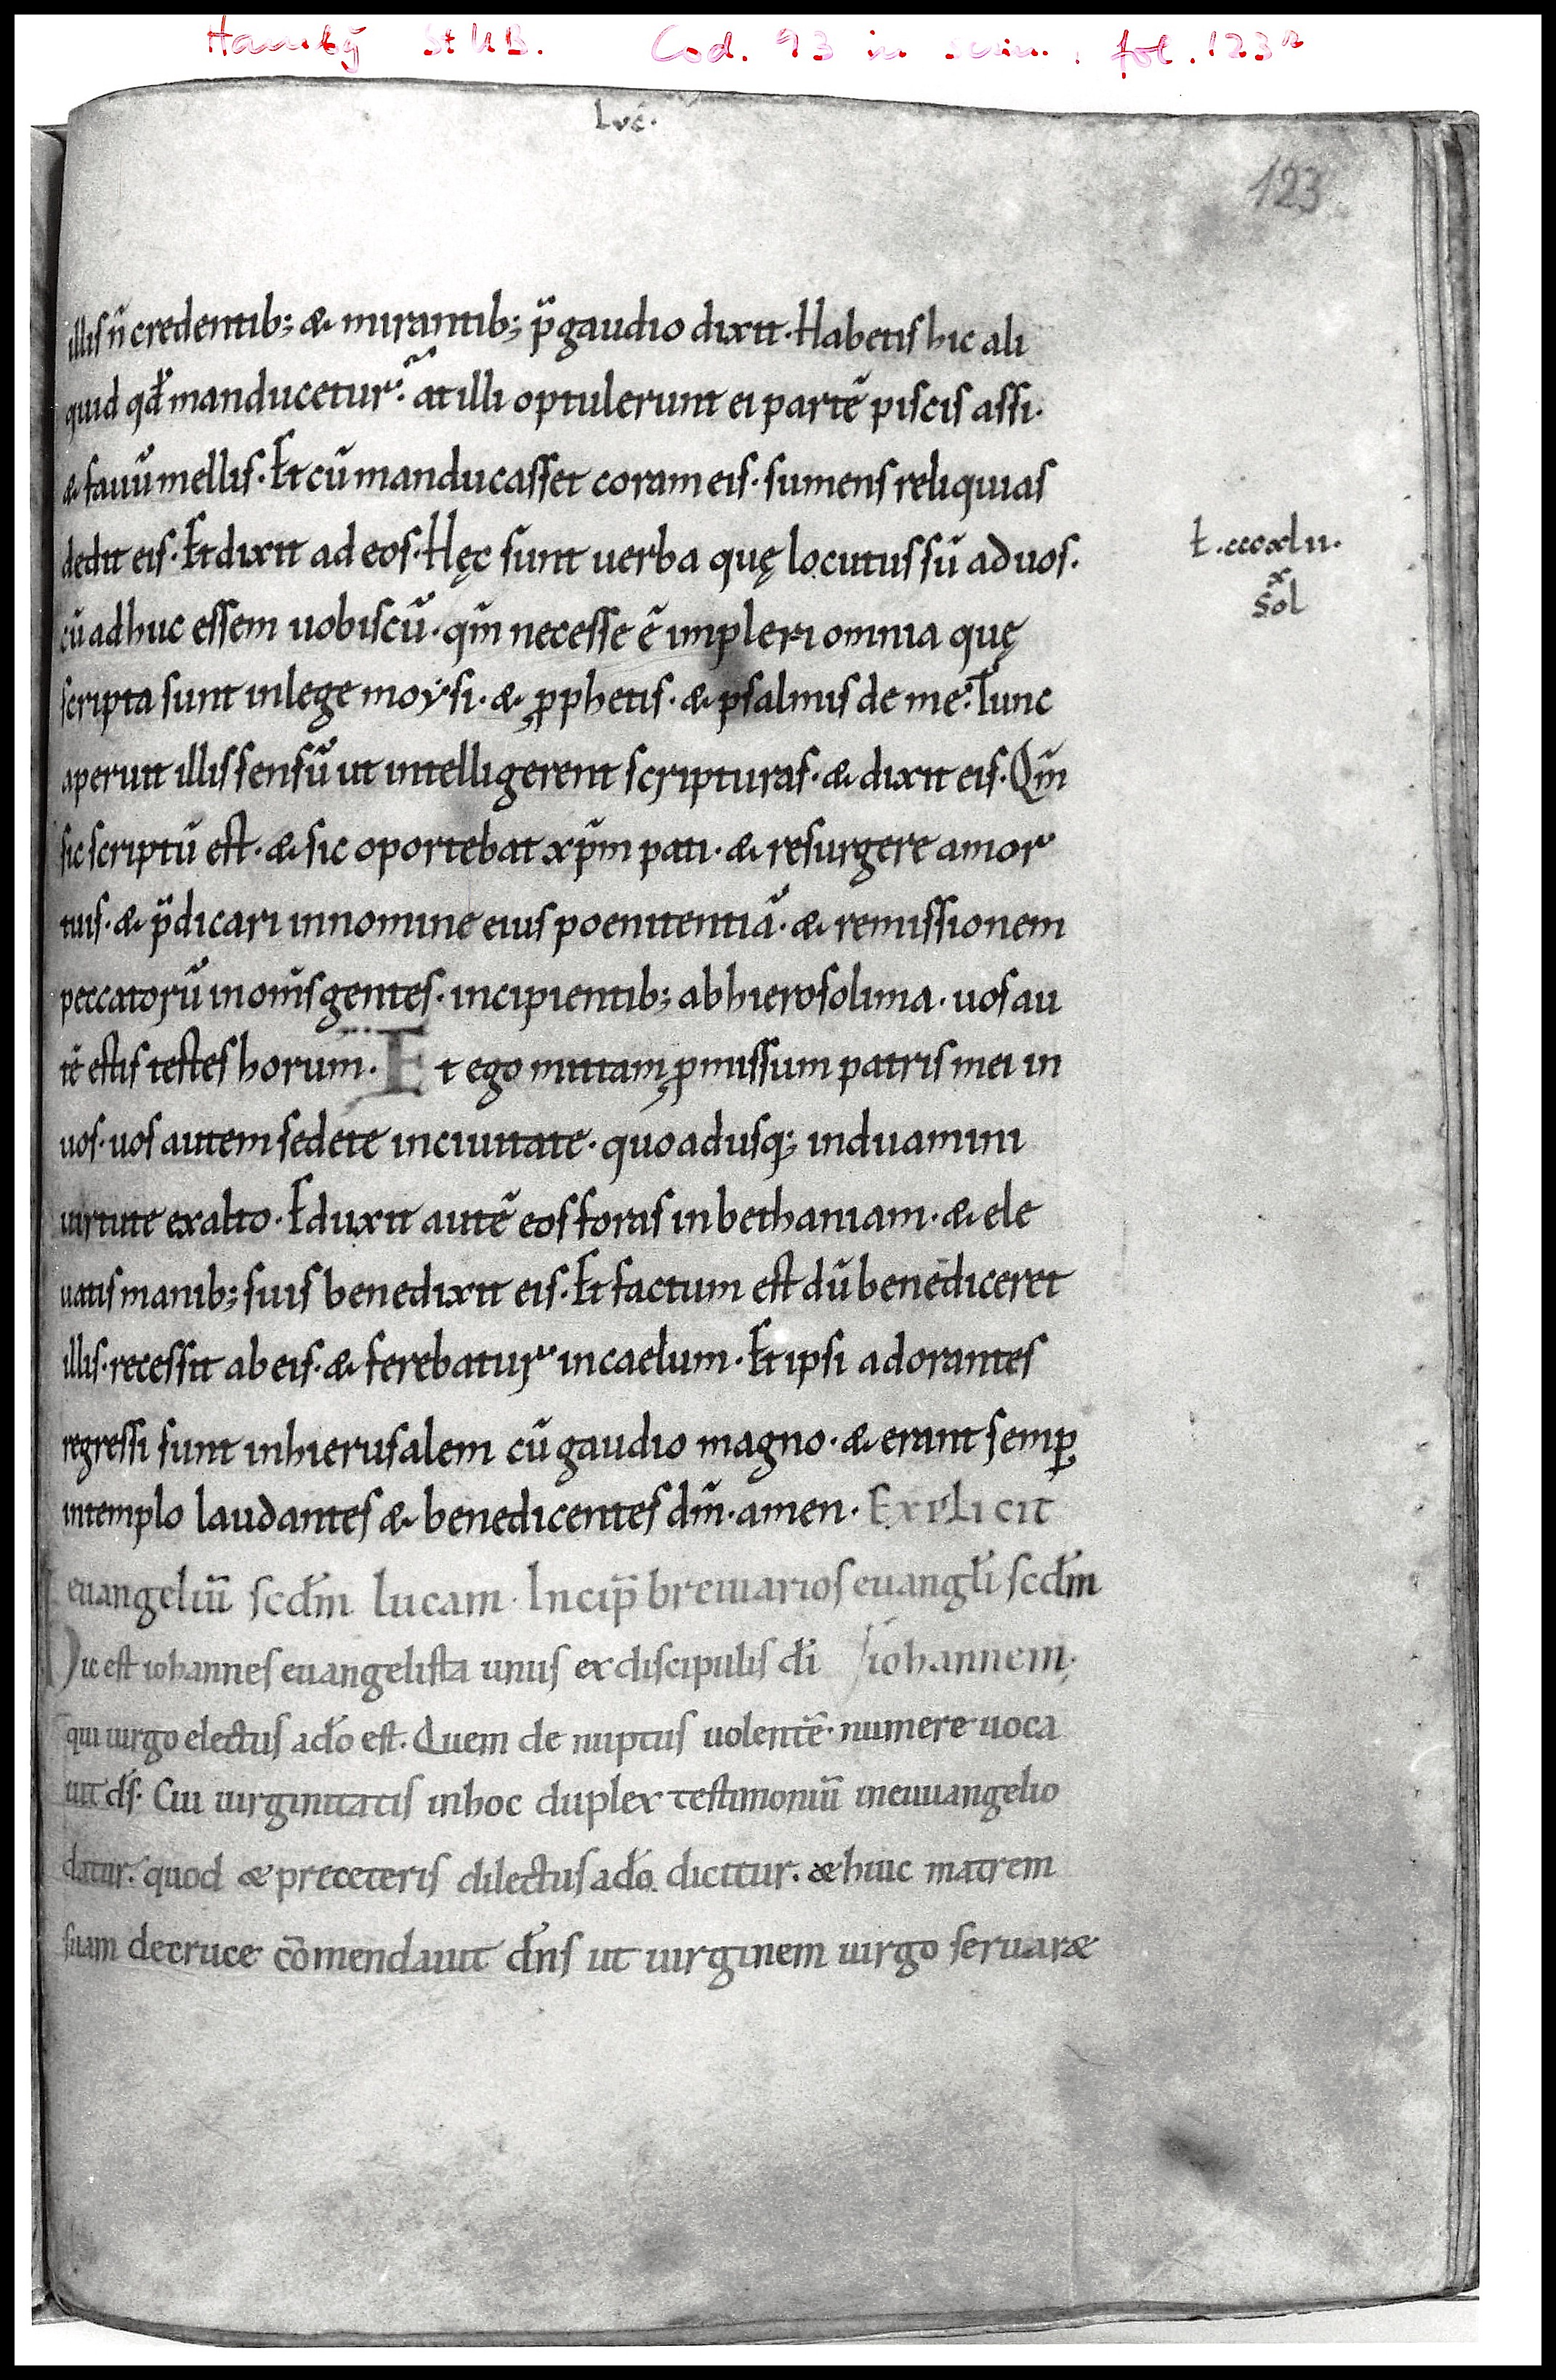 Hambg StUB. Cod. 93 in scrin. fol. 123r
Luc̄.
123
illis n̄ credentib; & mirantib; p̄ gaudio dixit. Habetis hic ali
quid qđ manducetur? at illi optulerunt ei partē piscis assi.
& fauū mellis. Et cū manducasset coram eis. sumens reliquias
dedit eis. Et dixit ad eos. Hęc sunt uerba quę locutus sū ad uos.
cū adhuc essem uobiscū. qm̄ necesse ē impleri omnia quę
scripta sunt in lege moẏsi. & ꝓphetis. & psalmis de me. Tunc
aperuit illis sensū ut intelligerent scripturas. & dixit eis. Qm̄
sic scriptū est. & sic oportebat xp̄m pati. & resurgere a mor
tuis. & p̄dicari in nomine eius poenitentiā. & remissionem
peccatorū in om̄s gentes. incipientib; ab hierosolima. uos au
tē estis testes horum. Et ego mittam ꝓmissum patris mei in
uos. uos autem sedete in ciuitate. quo adusq; induamini
uirtute ex alto. Eduxit autē eos foras in bethaniam. & ele
uatis manib; suis benedixit eis. Et factum est dū benediceret
illis. recessit ab eis. & ferebatur in caelum. Et ipsi adorantes
regressi sunt in hierusalem cū gaudio magno. & erant semꝑ
in templo laudantes & benedicentes dm̄. amen. Explicit
euangeliū scđm lucam. Incip̄ breuiarios euangl̄i scđm
Hic est iohannes euangelista unus ex discipulis dī iohannem.
qui uirgo electus a do̅ est. Quem de nuptiis uolentē numere uoca
uit ds̄. Cui uirginitatis in hoc duplex testimoniū in euuangelio
datur. quod & pre ceteris dilectus a do̅ dicitur. & huic matrem
suam de cruce cōmendauit dn̄s ut uirginem uirgo seruar&
ł .cccxlii.
x
sol